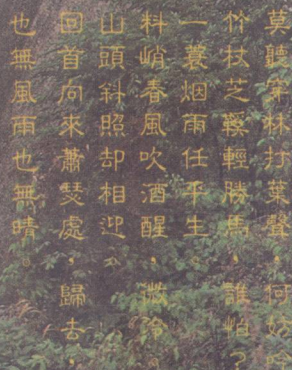 莫聽穿林打葉聲，何妨吟
竹杖芒鞋輕勝馬，誰怕？
一蓑烟雨任平生
料峭春風吹酒醒，微冷，
山頭斜照却相迎
回首向來蕭瑟處，歸去，
也無風雨也無晴。